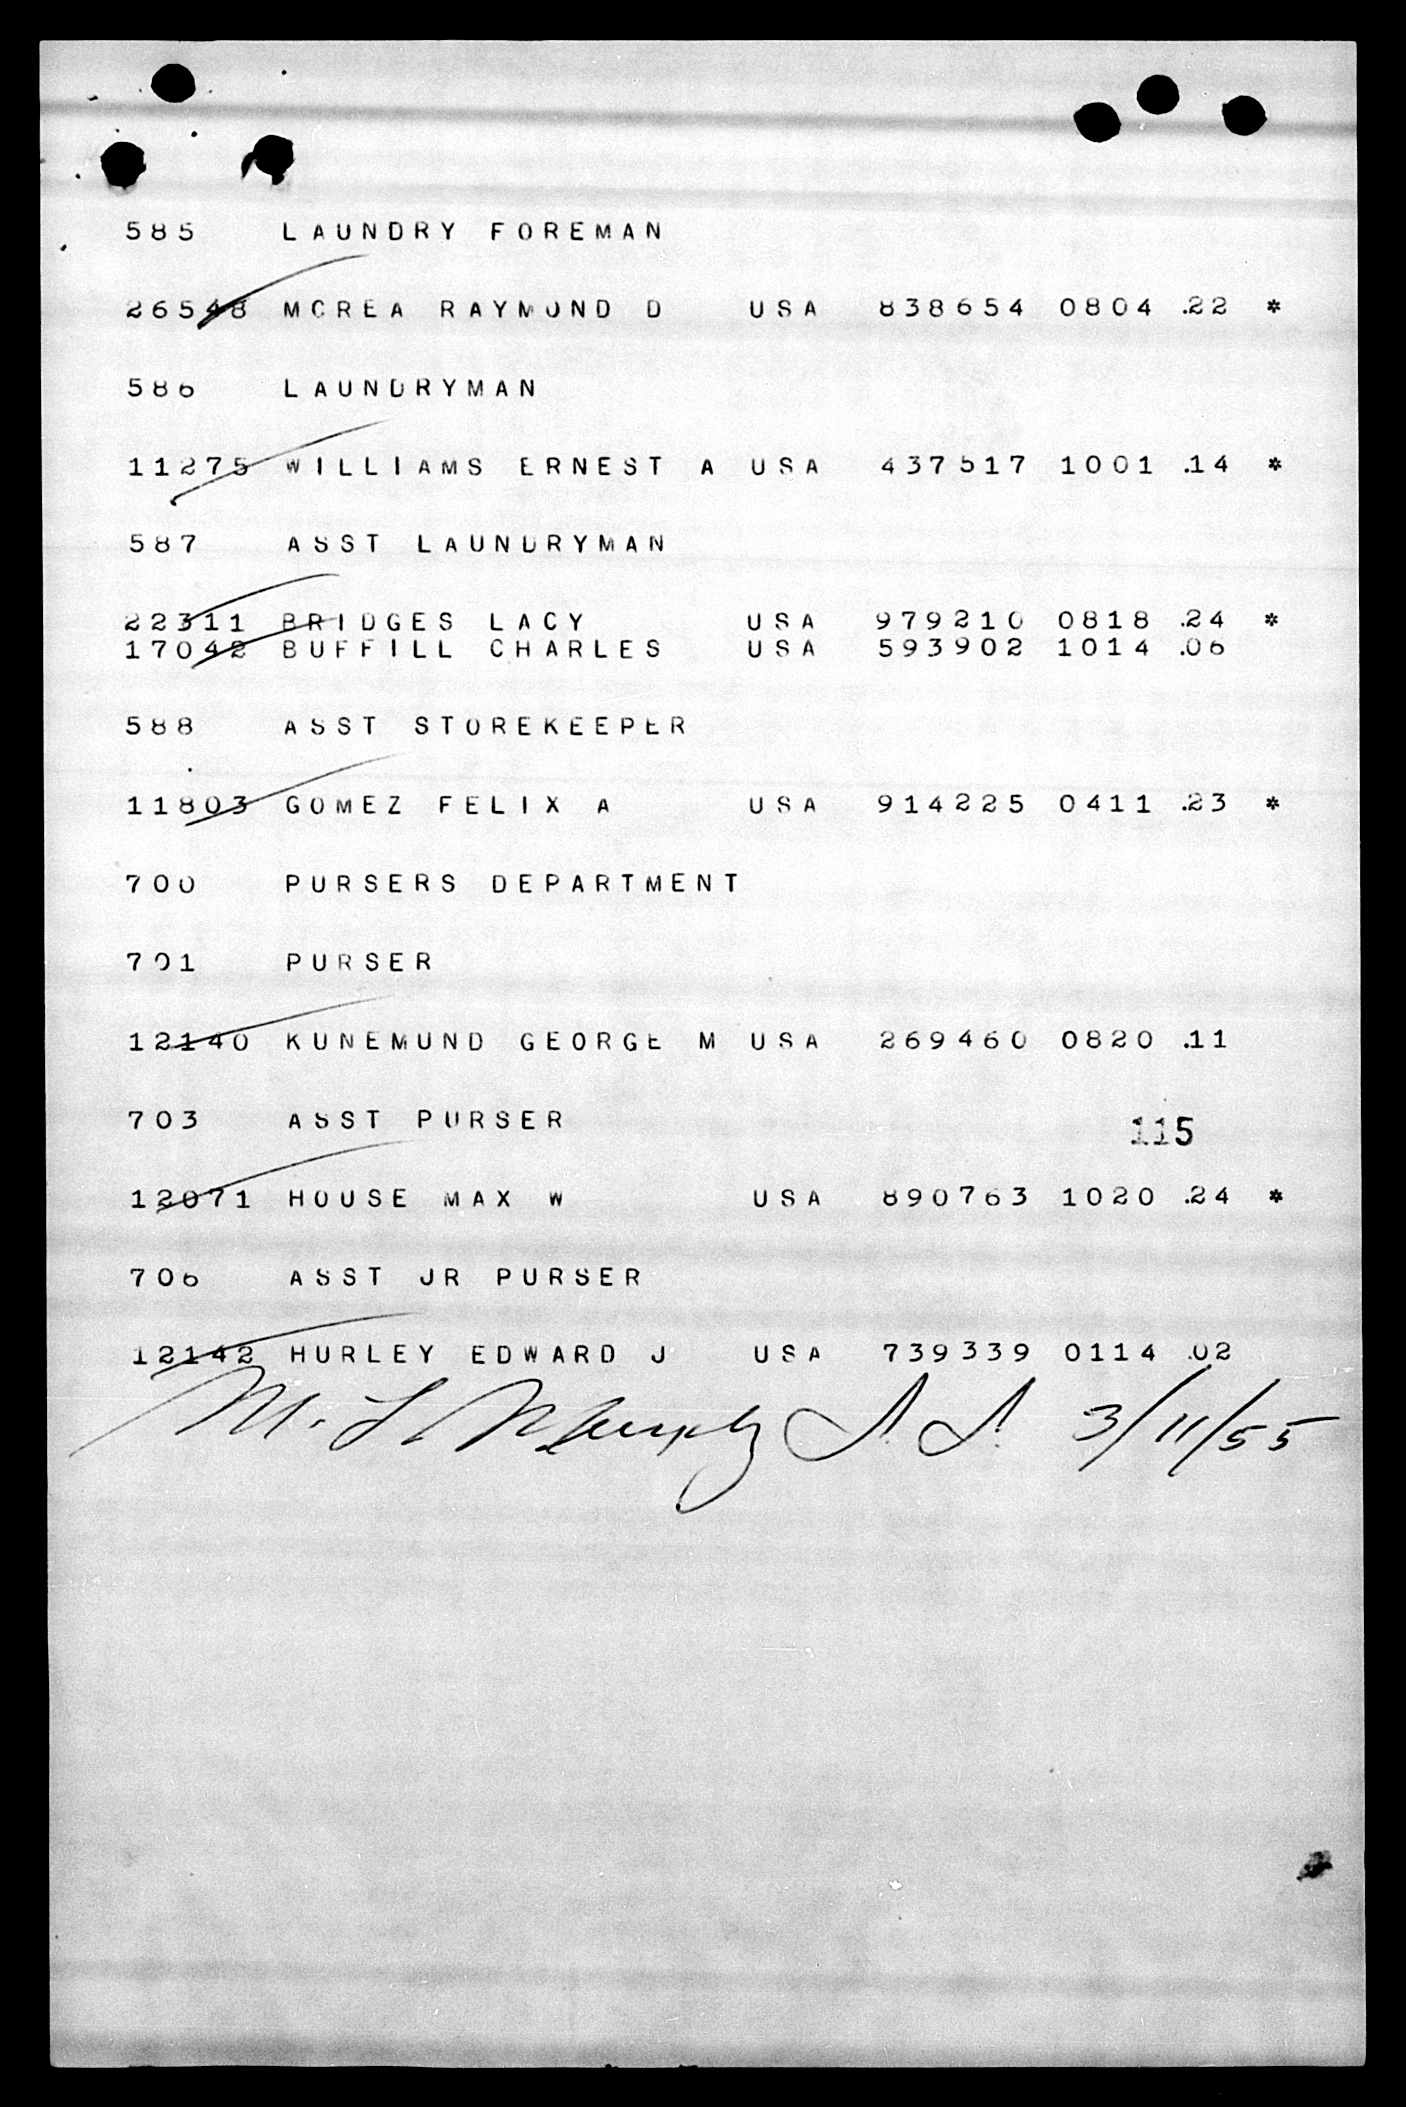 585 LAUNDRY FOREMAN
26548 MCREA RAYMOND D USA 838654 0804 .22 *
586 LAUNDRYMAN
11275 WILLIAMS ERNEST A USA 437517 1001 .14 *
587 ASST LAUNDRYMAN
22311 BRIDGES LACY USA 979210 0818 .24 *
17042 BUFFILL CHARLES USA 593902 1014 .06
588 ASST STOREKEEPER
11803 GOMEZ FELIX A USA 914225 0411 .23 *
700 PURSERS DEPARTMENT
701 PURSER
12140 KUNEMUND GEORGE M USA 269460 0820 .11
703 ASST PURSER
115
12071 HOUSE MAX W USA 890763 1020 .24 *
706 ASST JR PURSER
12142 HURLEY EDWARD J USA 739339 0114 .02
M. L. Murphy 3/11/55